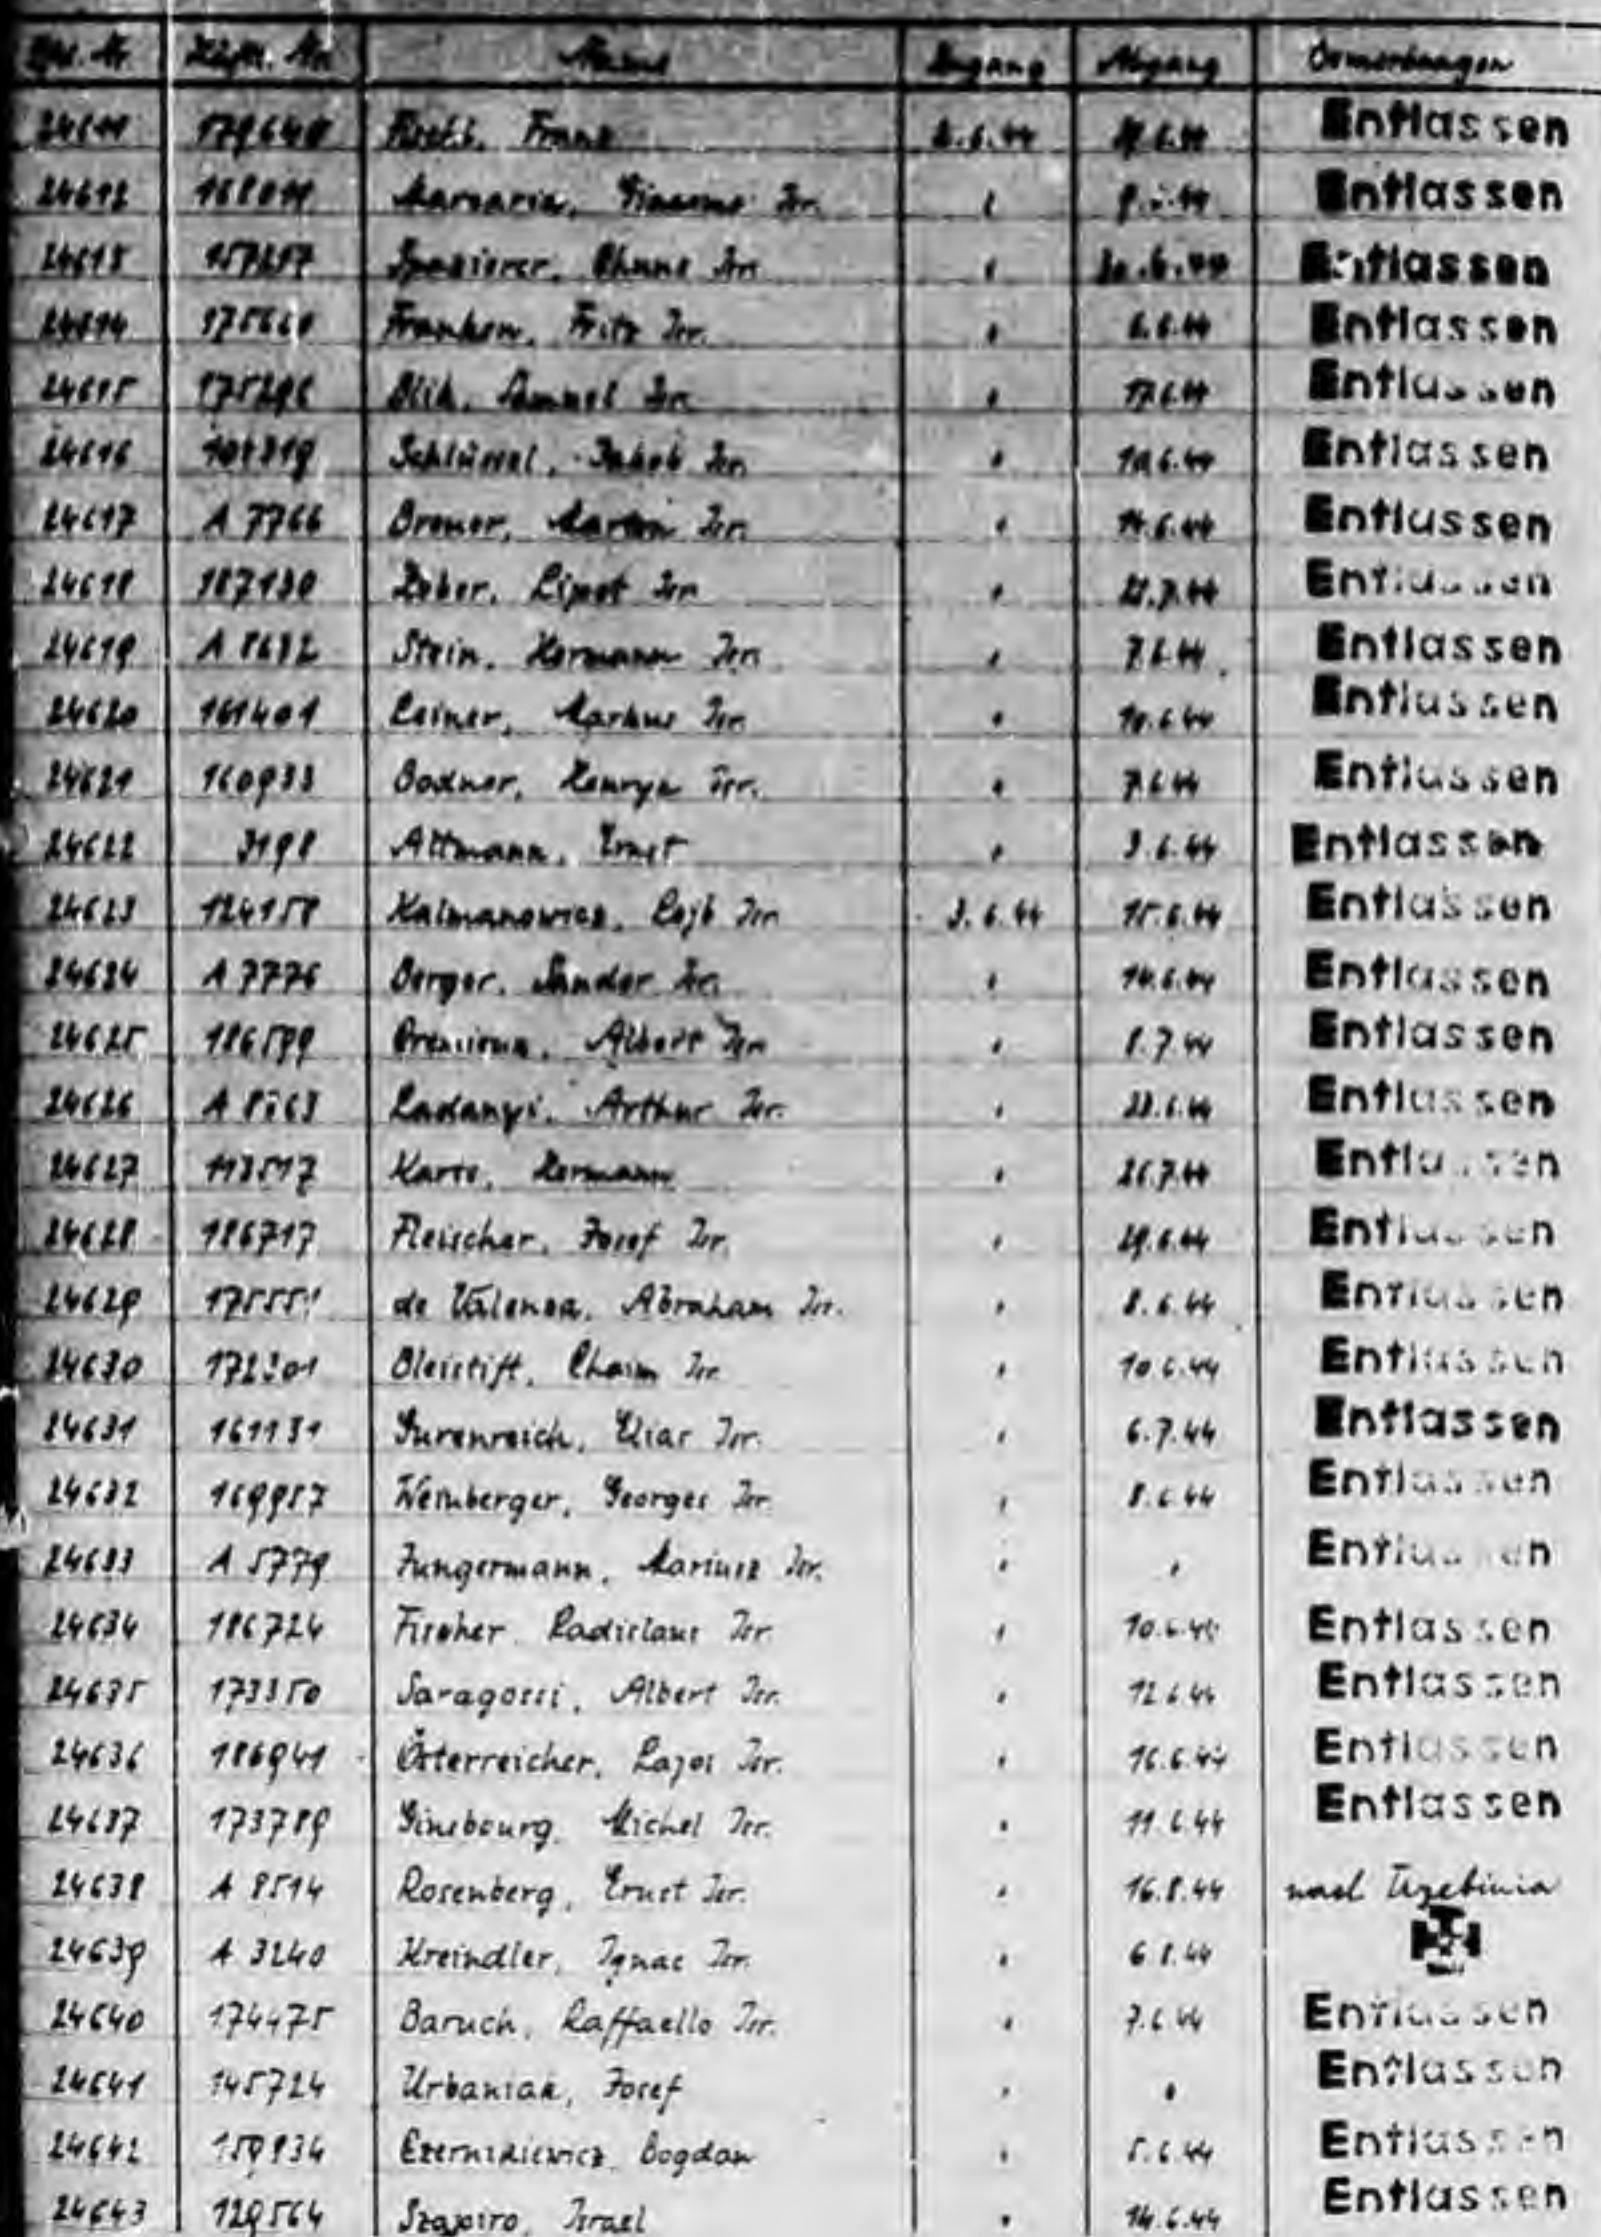 Häftl. Nr. Name Zugang Abgang Bemerkungen
24611 Franz 2.6.44 Entlassen
24612 Isr. Entlassen
24613 157257 Spazierer, Chune Isr. Entlassen
24614 Franken, Fritz Isr. " 6.6.44 Entlassen
24615 175296 Samuel Isr. " 17.6.44 Entlassen
24616 Schlüssel, Jakob Isr. " 10.6.44 Entlassen
24617 A 7766 Breuer, Martin Isr. " 14.6.44 Entlassen
24618 187130 Lipot Isr. " Entlassen
24619 A 8632 Stein, Hermann Isr. " 7.6.44 Entlassen
24620 161401 Leiner, Markus Isr. " 10.6.44 Entlassen
24621 160933 Bodner, Henryk Isr. " 7.6.44 Entlassen
24622 3198 Altmann, Ernst " 3.6.44 Entlassen
24623 124158 Kalmanowicz, Lejb Isr. 3.6.44 15.6.44 Entlassen
24624 A 7776 Berger, Sandor Isr. " 14.6.44 Entlassen
24625 186599 Albert Isr. " 8.7.44 Entlassen
24626 Ladanyi, Arthur Isr. " 23.6.44 Entlassen
24627 113517 Hermann " 26.7.44 Entlassen
24628 186717 Fleischer, Josef Isr. " 29.6.44 Entlassen
24629 de Valensa, Abraham Isr. " 8.6.44 Entlassen
24630 Bleistift, Chaim Isr. " 10.6.44 Entlassen
24631 161131 Gurenreich, Eliar Isr. " 6.7.44 Entlassen
24632 169957 Weinberger, Georges Isr. " 8.6.44 Entlassen
24633 A 5779 Jungermann, Mariusz Isr. " " Entlassen
24634 186724 Fischer Ladislaus Isr. " 10.6.44 Entlassen
24635 173350 Saragossi, Albert Isr. " 12.6.44 Entlassen
24636 186941 Österreicher, Lajos Isr. " 16.6.44 Entlassen
24637 173789 Ginsbourg, Michel Isr. " 11.6.44 Entlassen
24638 A 8514 Rosenberg, Ernst Isr. " 16.8.44 nach Trzebinia
24639 A 3240 Kreindler, Ignac Isr. " 6.8.44
24640 174475 Baruch, Raffaello Isr. " 7.6.44 Entlassen
24641 145724 Urbaniak, Josef " " Entlassen
24642 159934 Bogdan " 5.6.44 Entlassen
24643 129564 Szapiro, Israel " 14.6.44 Entlassen